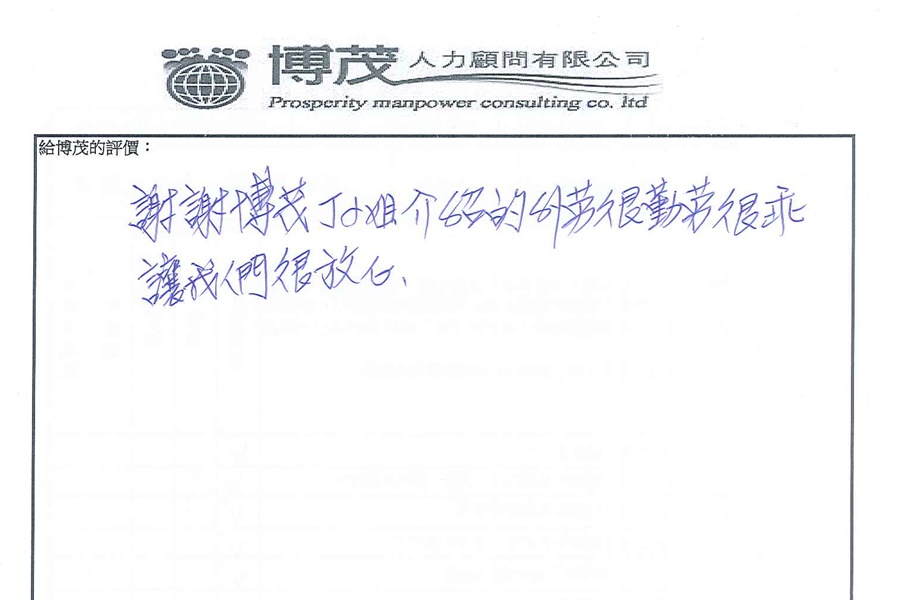 博茂人力顧問有限公司
Prosperity manpower consulting co. ltd
給博茂的評價：
謝謝博茂Jo姐介紹的外勞很勤勞很乖
讓我們很放心、